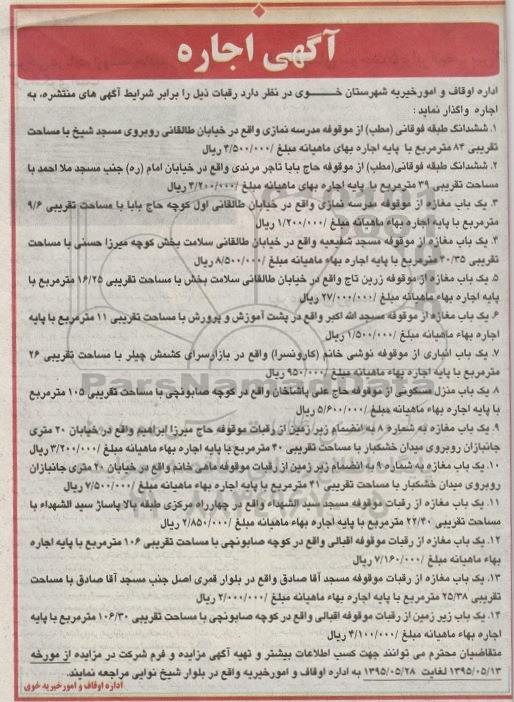 آگهی اجاره
اداره اوقاف و امورخیریه شهرستان خـــوی در نظر دارد رقبات ذیل را برابر شرایط آگهی های منتشره، به
اجاره واگذار نماید :
۱. ششدانگ طبقه فوقانی (مطب) از موقوفه مدرسه نمازی واقع در خیابان طالقانی روبروی مسجد شیخ با مساحت
تقریبی ۸۴ مترمربع با پایه اجاره بهای ماهیانه مبلغ /۴/۵۰۰/۰۰۰ ریال
۲. ششدانگ طبقه فوقانی(مطب) از موقوفه حاج بابا تاجر مرندی واقع در خیابان امام (ره) جنب مسجد ملا احمد با
مساحت تقریبی ۳۹ مترمربع با پایه اجاره بهای ماهیانه مبلغ /۴/۲۰۰/۰۰۰ ریال
۳. یک باب مغازه از موقوفه مدرسه نمازی واقع در خیابان طالقانی اول کوچه حاج بابا با مساحت تقریبی ۹/۶
مترمربع با پایه اجاره بهاء ماهیانه مبلغ /۱/۲۰۰/۰۰۰ ریال
۴. یک باب مغازه از موقوفه مسجد شفیعیه واقع در خیابان طالقانی سلامت بخش کوچه میرزا حسنی با مساحت
تقریبی ۳۰/۳۵ مترمربع با پایه اجاره بهاء ماهیانه مبلغ /۸/۵۰۰/۰۰۰ ریال
۵. یک باب مغازه از موقوفه زرین تاج واقع در خیابان طالقانی سلامت بخش با مساحت تقریبی ۱۶/۲۵ مترمربع با
پایه اجاره بهاء ماهیانه مبلغ /۲۷/۰۰۰/۰۰۰ ریال
۶. یک باب مغازه از موقوفه مسجد الله اکبر واقع در پشت آموزش و پرورش با مساحت تقریبی ۱۱ مترمربع با پایه
اجاره بهاء ماهیانه مبلغ /۱/۵۰۰/۰۰۰ ریال
۷. یک باب انباری از موقوفه نوشی خانم (کارونسرا) واقع در بازارسرای کشمش چیلر با مساحت تقریبی ۲۶
مترمربع با پایه اجاره بهاء ماهیانه مبلغ /۹۵۰/۰۰۰ ریال
۸. یک باب منزل مسکونی از موقوفه حاج علی پاشاخان واقع در کوچه صابونچی با مساحت تقریبی ۱۰۵ مترمربع
با پایه اجاره بهاء ماهیانه مبلغ /۵/۶۰۰/۰۰۰ ریال
۹. یک باب مغازه به شماره ۸ به انضمام زیر زمین از رقبات موقوفه حاج میرزا ابراهیم واقع در خیابان ۲۰ متری
جانبازان روبروی میدان خشکبار با مساحت تقریبی ۴۰ مترمربع با پایه اجاره بهاء ماهیانه مبلغ /۳/۲۰۰/۰۰۰ ریال
۱۰. یک باب مغازه به شماره ۹ به انضمام زیر زمین از رقبات موقوفه ماهی خانم واقع در خیابان ۲۰ متری جانبازان
روبروی میدان خشکبار با مساحت تقریبی ۴۱ مترمربع با پایه اجاره بهاء ماهیانه مبلغ /۷/۵۰۰/۰۰۰ ریال
۱۱. یک باب مغازه از رقبات موقوفه مسجد سید الشهداء واقع در چهارراه مرکزی طبقه بالا پاساژ سید الشهداء با
مساحت تقریبی ۲۲/۴۰ مترمربع با پایه اجاره بهاء ماهیانه مبلغ /۲/۸۵۰/۰۰۰ ریال
۱۲. یک باب مغازه از رقبات موقوفه اقبالی واقع در کوچه صابونچی با مساحت تقریبی ۱۰۶ مترمربع با پایه اجاره
بهاء ماهیانه مبلغ /۷/۱۶۰/۰۰۰ ریال
۱۳. یک باب مغازه از رقبات موقوفه مسجد آقا صادق واقع در بلوار قمری اصل جنب مسجد آقا صادق با مساحت
تقریبی ۲۵/۳۸ مترمربع با پایه اجاره بهاء ماهیانه مبلغ /۲/۰۰۰/۰۰۰ ریال
۱۴. یک باب زیر زمین از رقبات موقوفه اقبالی واقع در کوچه صابونچی با مساحت تقریبی ۱۰۶/۳۰ مترمربع با پایه
اجاره بهاء ماهیانه مبلغ /۴/۱۰۰/۰۰۰ ریال
متقاضیان محترم می توانند جهت کسب اطلاعات بیشتر و تهیه آگهی مزایده و فرم شرکت در مزایده از مورخه
۱۳۹۵/۰۵/۱۳ لغایت ۱۳۹۵/۰۵/۲۸ به اداره اوقاف و امورخیریه واقع در بلوار شیخ نوایی مراجعه نمایند.
اداره اوقاف و امورخیریه خوی
ParsNamadData